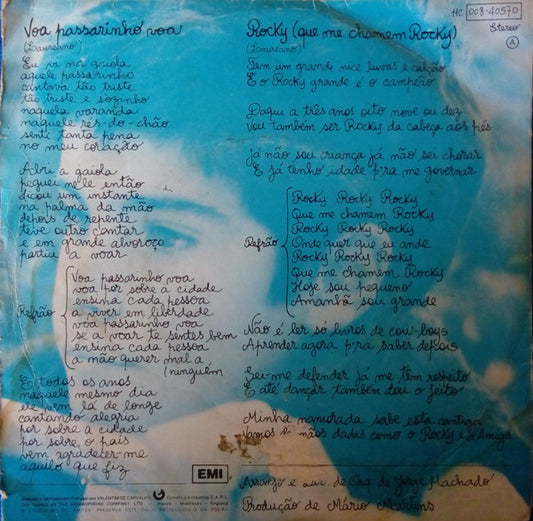 HC 008-40570
Stereo
A
Voa passarinho voa
(Laureano)
Eu vi na gaiola
aquele passarinho
cantava tão triste
tão triste e sozinho
naquela varanda
naquele rés-do-chão
senti tanta pena
no meu coração
Abri a gaiola
peguei nele então
ficou um instante
na palma da mão
depois de repente
teve outro cantar
e em grande alvoroço
partiu a voar
Refrão
Voa passarinho voa
voa por sobre a cidade
ensina cada pessoa
a viver em liberdade
voa passarinho voa
se a voar te sentes bem
ensina cada pessoa
a não querer mal a
(ninguém
E todos os anos
naquele mesmo dia
ele vem lá de longe
cantando alegria
por sobre a cidade
por sobre o país
vem agradecer-me
aquilo que fiz
Rocky (que me chamem Rocky)
(Laureano)
Tem um grande nice luvas e calção
E o Rocky grande é o campeão
Daqui a três anos oito nove ou dez
Vou também ser Rocky da cabeça aos pés
Já não sou criança já não sei chorar
E já tenho idade p'ra me governar
Refrão
Rocky Rocky Rocky
Que me chamem Rocky
Rocky Rocky Rocky
Onde quer que eu ande
Rocky Rocky Rocky
Que me chamem Rocky
Hoje sou pequeno
Amanhã sou grande
Não é ler só livros de cow-boys
Aprender agora p'ra saber depois
Sei-me defender já me têm respeito
E até dançar também dou o jeito
Minha namorada sabe esta cantiga
Vamos de mãos dadas como o Rocky e a Amiga
Arranjo e Dir. de Orq. de Jorge Machado
Produção de Mário Martins
EMI
Gravado e fabricado em Portugal por VALENTIM DE CARVALHO, Comércio e Indústria S.A.R.L.
THE GRAMOPHONE COMPANY LTD. Hayes - Middlesex - England